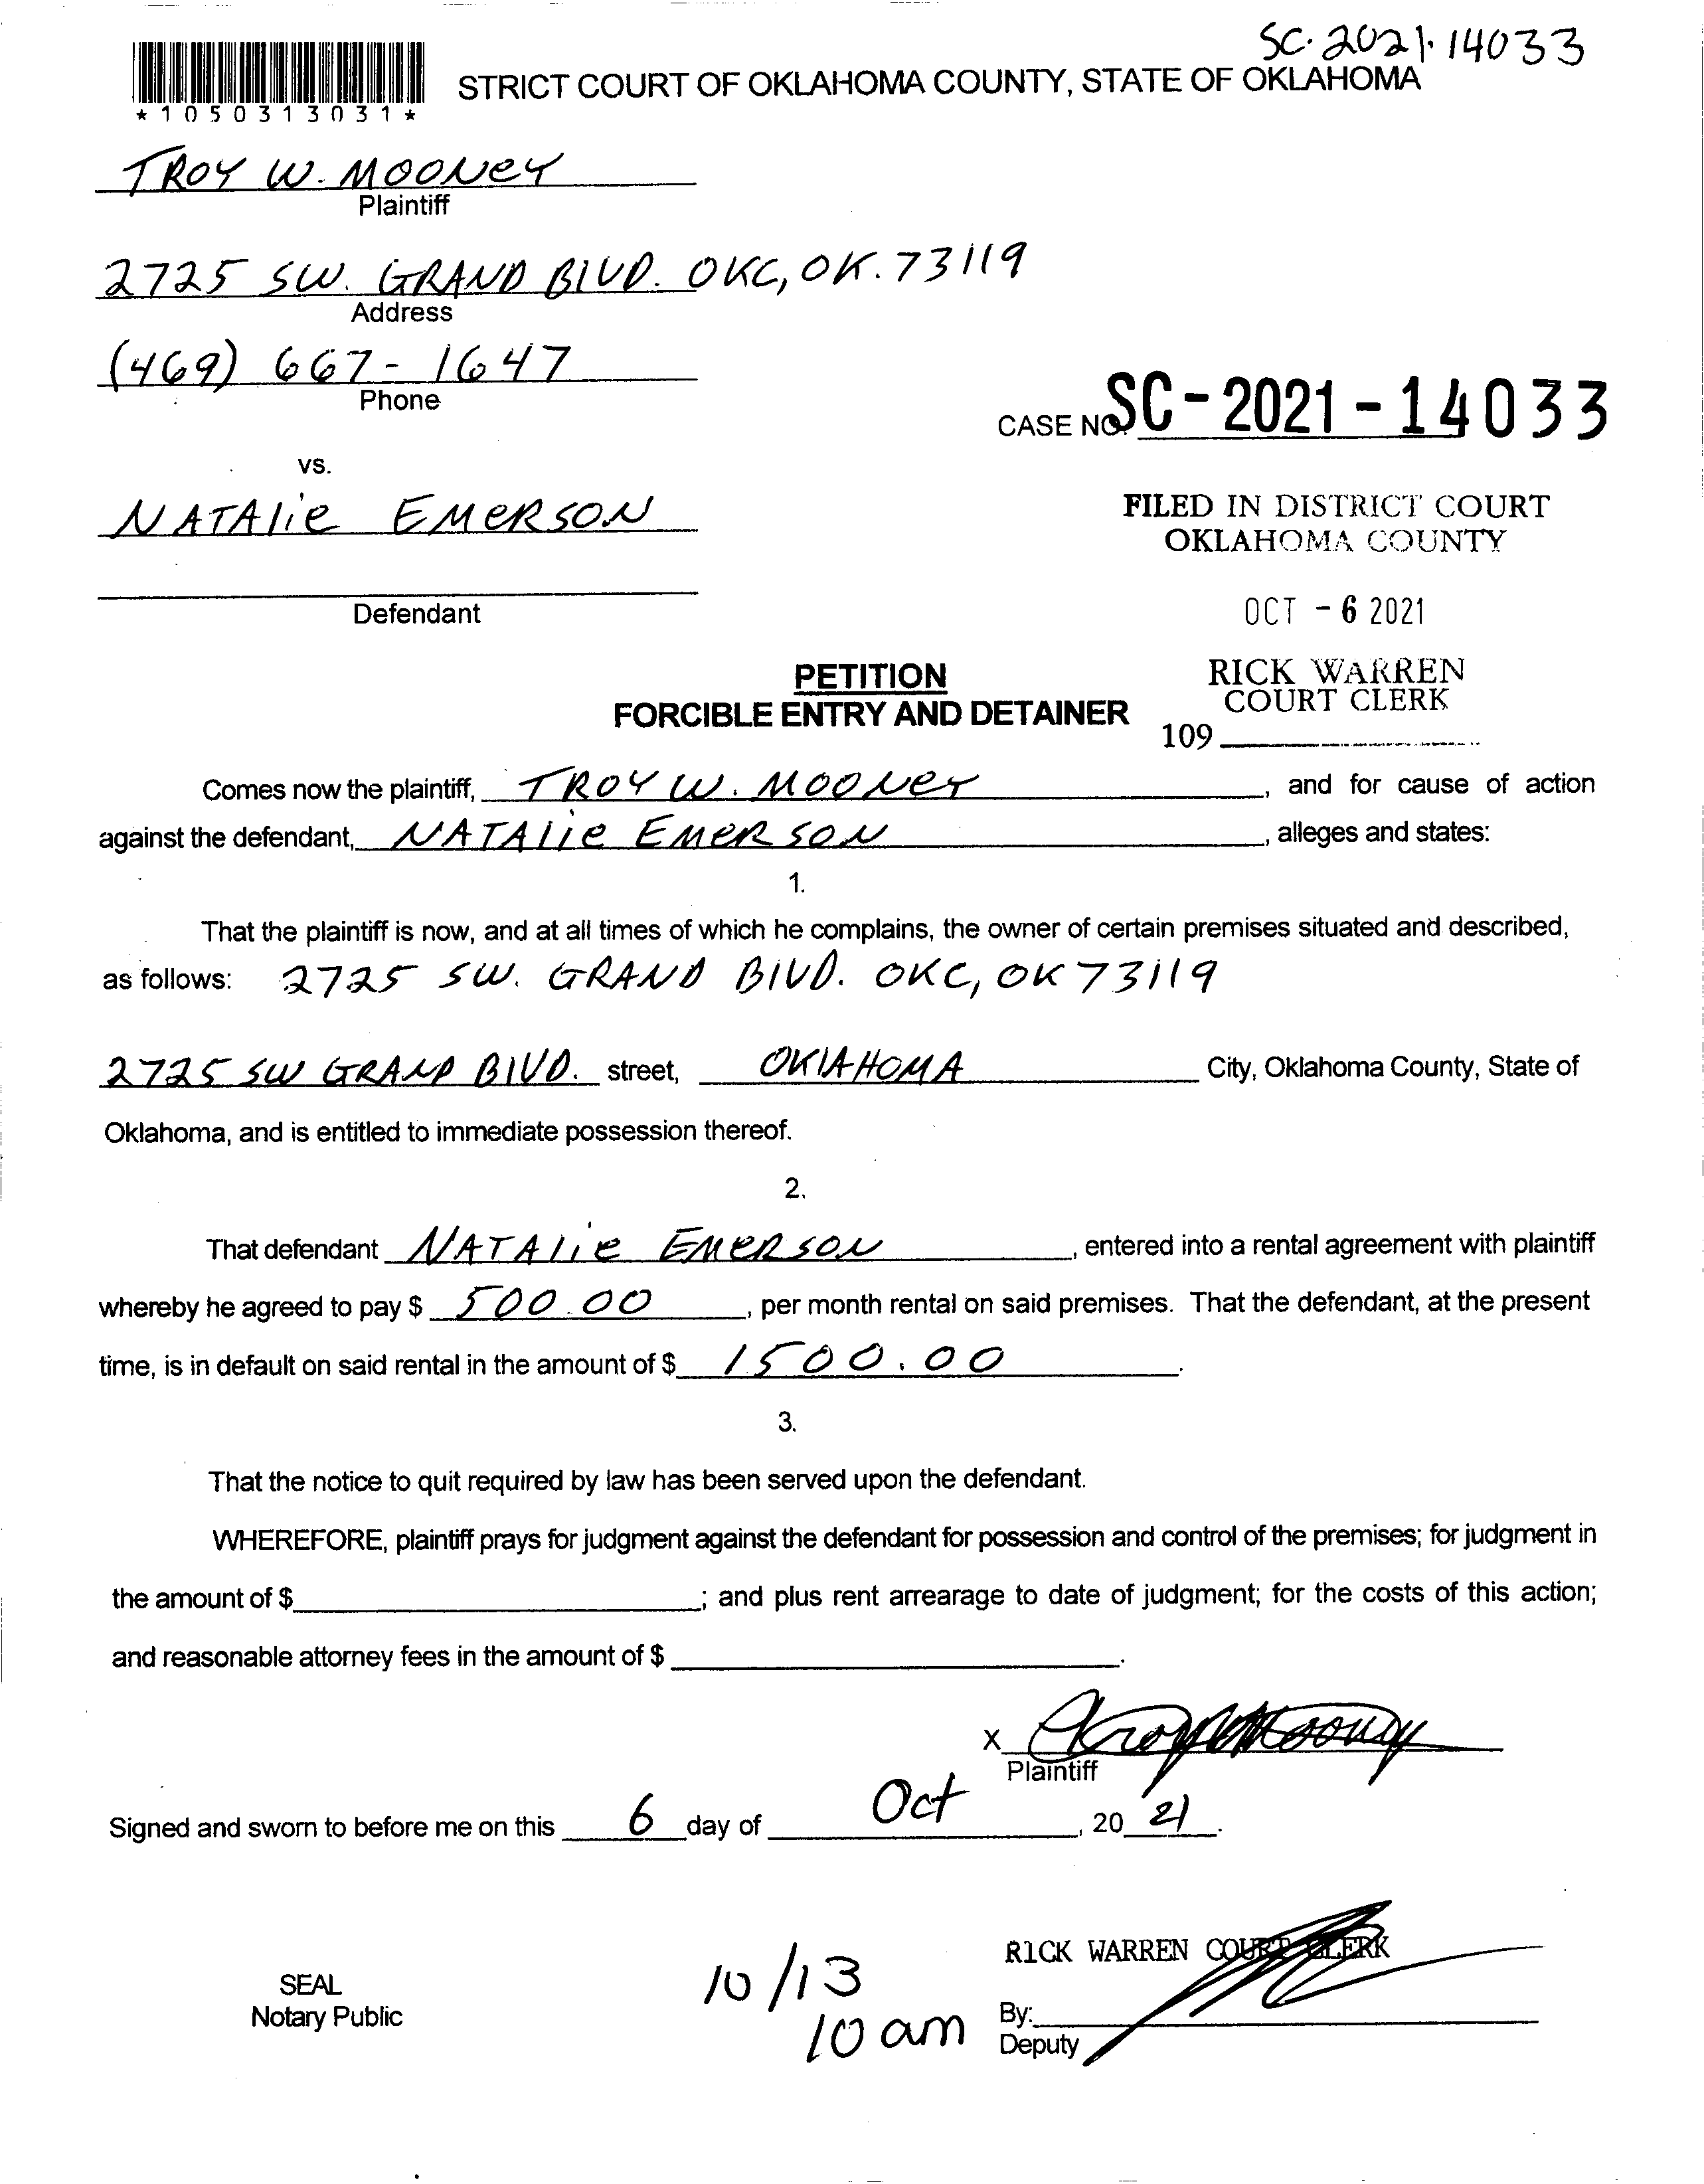 SC-2021-14033
STRICT COURT OF OKLAHOMA COUNTY, STATE OF OKLAHOMA
*1050313031*
TROY W. MOONEY
Plaintiff
2725 SW. GRAND BlVD. OKC, OK. 73119
Address
(469) 667-1647
Phone
CASE NO. SC-2021-14033
vs.
NATAlie EMERSON
FILED IN DISTRICT COURT
OKLAHOMA COUNTY
Defendant
OCT -6 2021
PETITION
RICK WARREN
COURT CLERK
FORCIBLE ENTRY AND DETAINER
109
Comes now the plaintiff, TROY W. MOONEY, and for cause of action
against the defendant, NATAlie EMERSON, alleges and states:
1.
That the plaintiff is now, and at all times of which he complains, the owner of certain premises situated and described,
as follows: 2725 SW. GRAND BlVD. OKC, OK 73119
2725 SW GRAND BlVD. street, OKlAHOMA City, Oklahoma County, State of
Oklahoma, and is entitled to immediate possession thereof.
2.
That defendant NATAlie EMERSON, entered into a rental agreement with plaintiff
whereby he agreed to pay $ 500.00, per month rental on said premises. That the defendant, at the present
time, is in default on said rental in the amount of $ 1500.00.
3.
That the notice to quit required by law has been served upon the defendant.
WHEREFORE, plaintiff prays for judgment against the defendant for possession and control of the premises; for judgment in
the amount of $ ; and plus rent arrearage to date of judgment; for the costs of this action;
and reasonable attorney fees in the amount of $ .
X Troy W Mooney
Plaintiff
Signed and sworn to before me on this 6 day of Oct, 20 21.
RICK WARREN COURT CLERK
SEAL
Notary Public
10/13
10 am
By:
Deputy